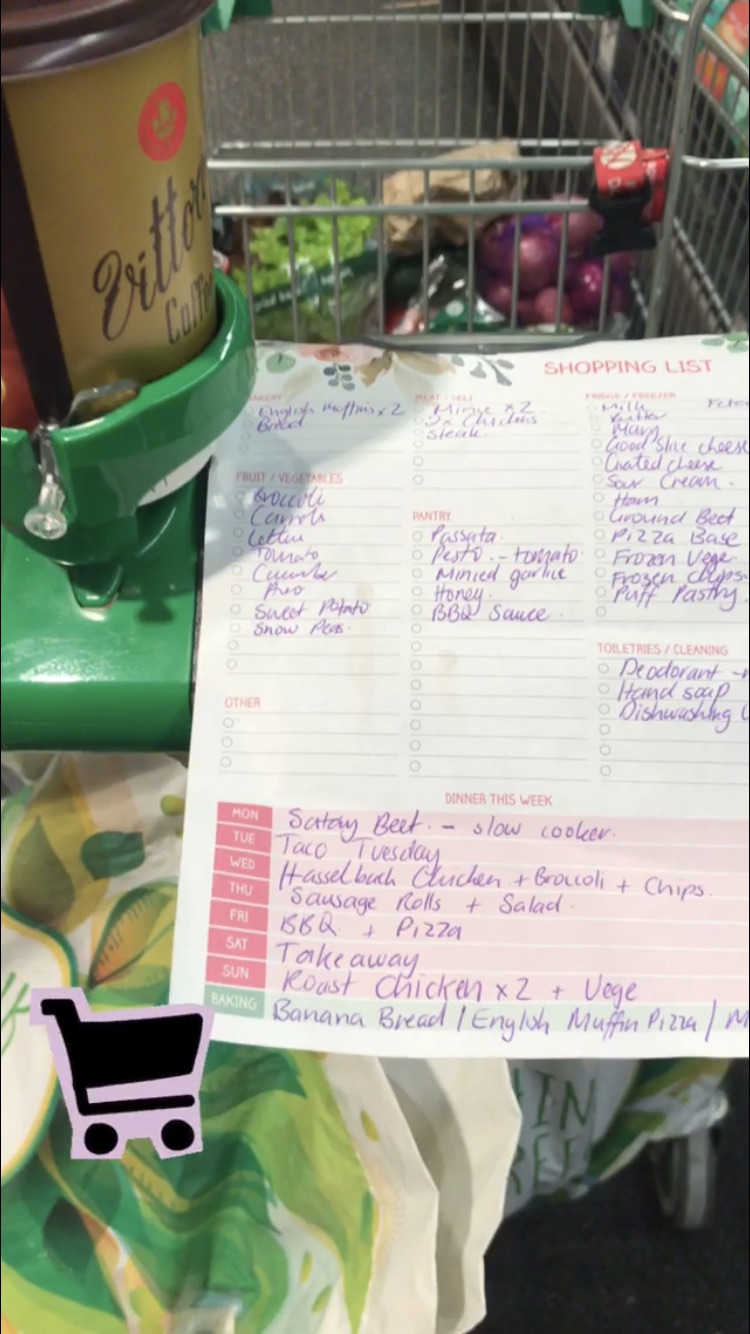 Vittoria
Coffee
SHOPPING LIST
BAKERY
English Muffins x 2
Bread
MEAT / DELI
Mince x2
2x Chickens
Steak.
FRIDGE / FREEZER
Milk
Butter
Good slice cheese
Grated cheese
Sour Cream.
Ham
Ground Beef
Pizza Base
Frozen Vege.
Frozen chips.
Puff Pastry
FRUIT / VEGETABLES
Broccoli
Carrots
Lettuce
Tomato
Cucumber
Avo
Sweet Potato
Snow Peas.
PANTRY
Passata.
Pesto. - tomato.
Minced garlic
Honey.
BBQ Sauce.
TOILETRIES / CLEANING
Deodorant -
Hand soap
Dishwashing
OTHER
DINNER THIS WEEK
MON Satay Beef. - slow cooker.
TUE Taco Tuesday
WED Hasselback Chicken + Broccoli + Chips.
THU Sausage Rolls + Salad.
FRI BBQ. + Pizza
SAT Takeaway
SUN Roast Chicken x2 + Vege
BAKING Banana Bread / English Muffin Pizza / M